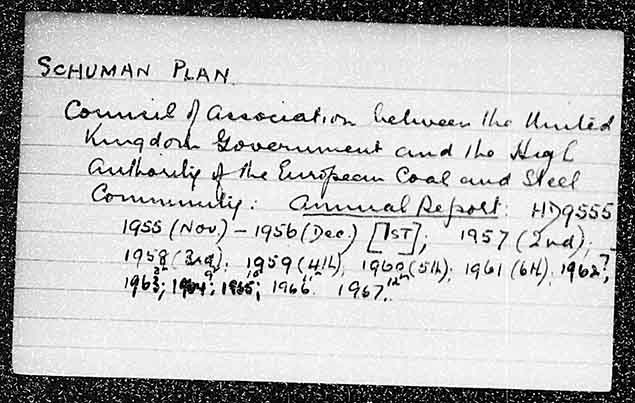 SCHUMAN PLAN
Council of Association between the United
Kingdom Government and the High
Authority of the European Coal and Steel
Community: Annual Report: HD9555
1955 (Nov) - 1956 (Dec) [1ST]; 1957 (2nd);
1958 (3rd); 1959 (4th); 1960 (5th); 1961 (6th); 1962, 7
1963, 8; 1964, 9; 1965, 10; 1966, 11; 1967, 12